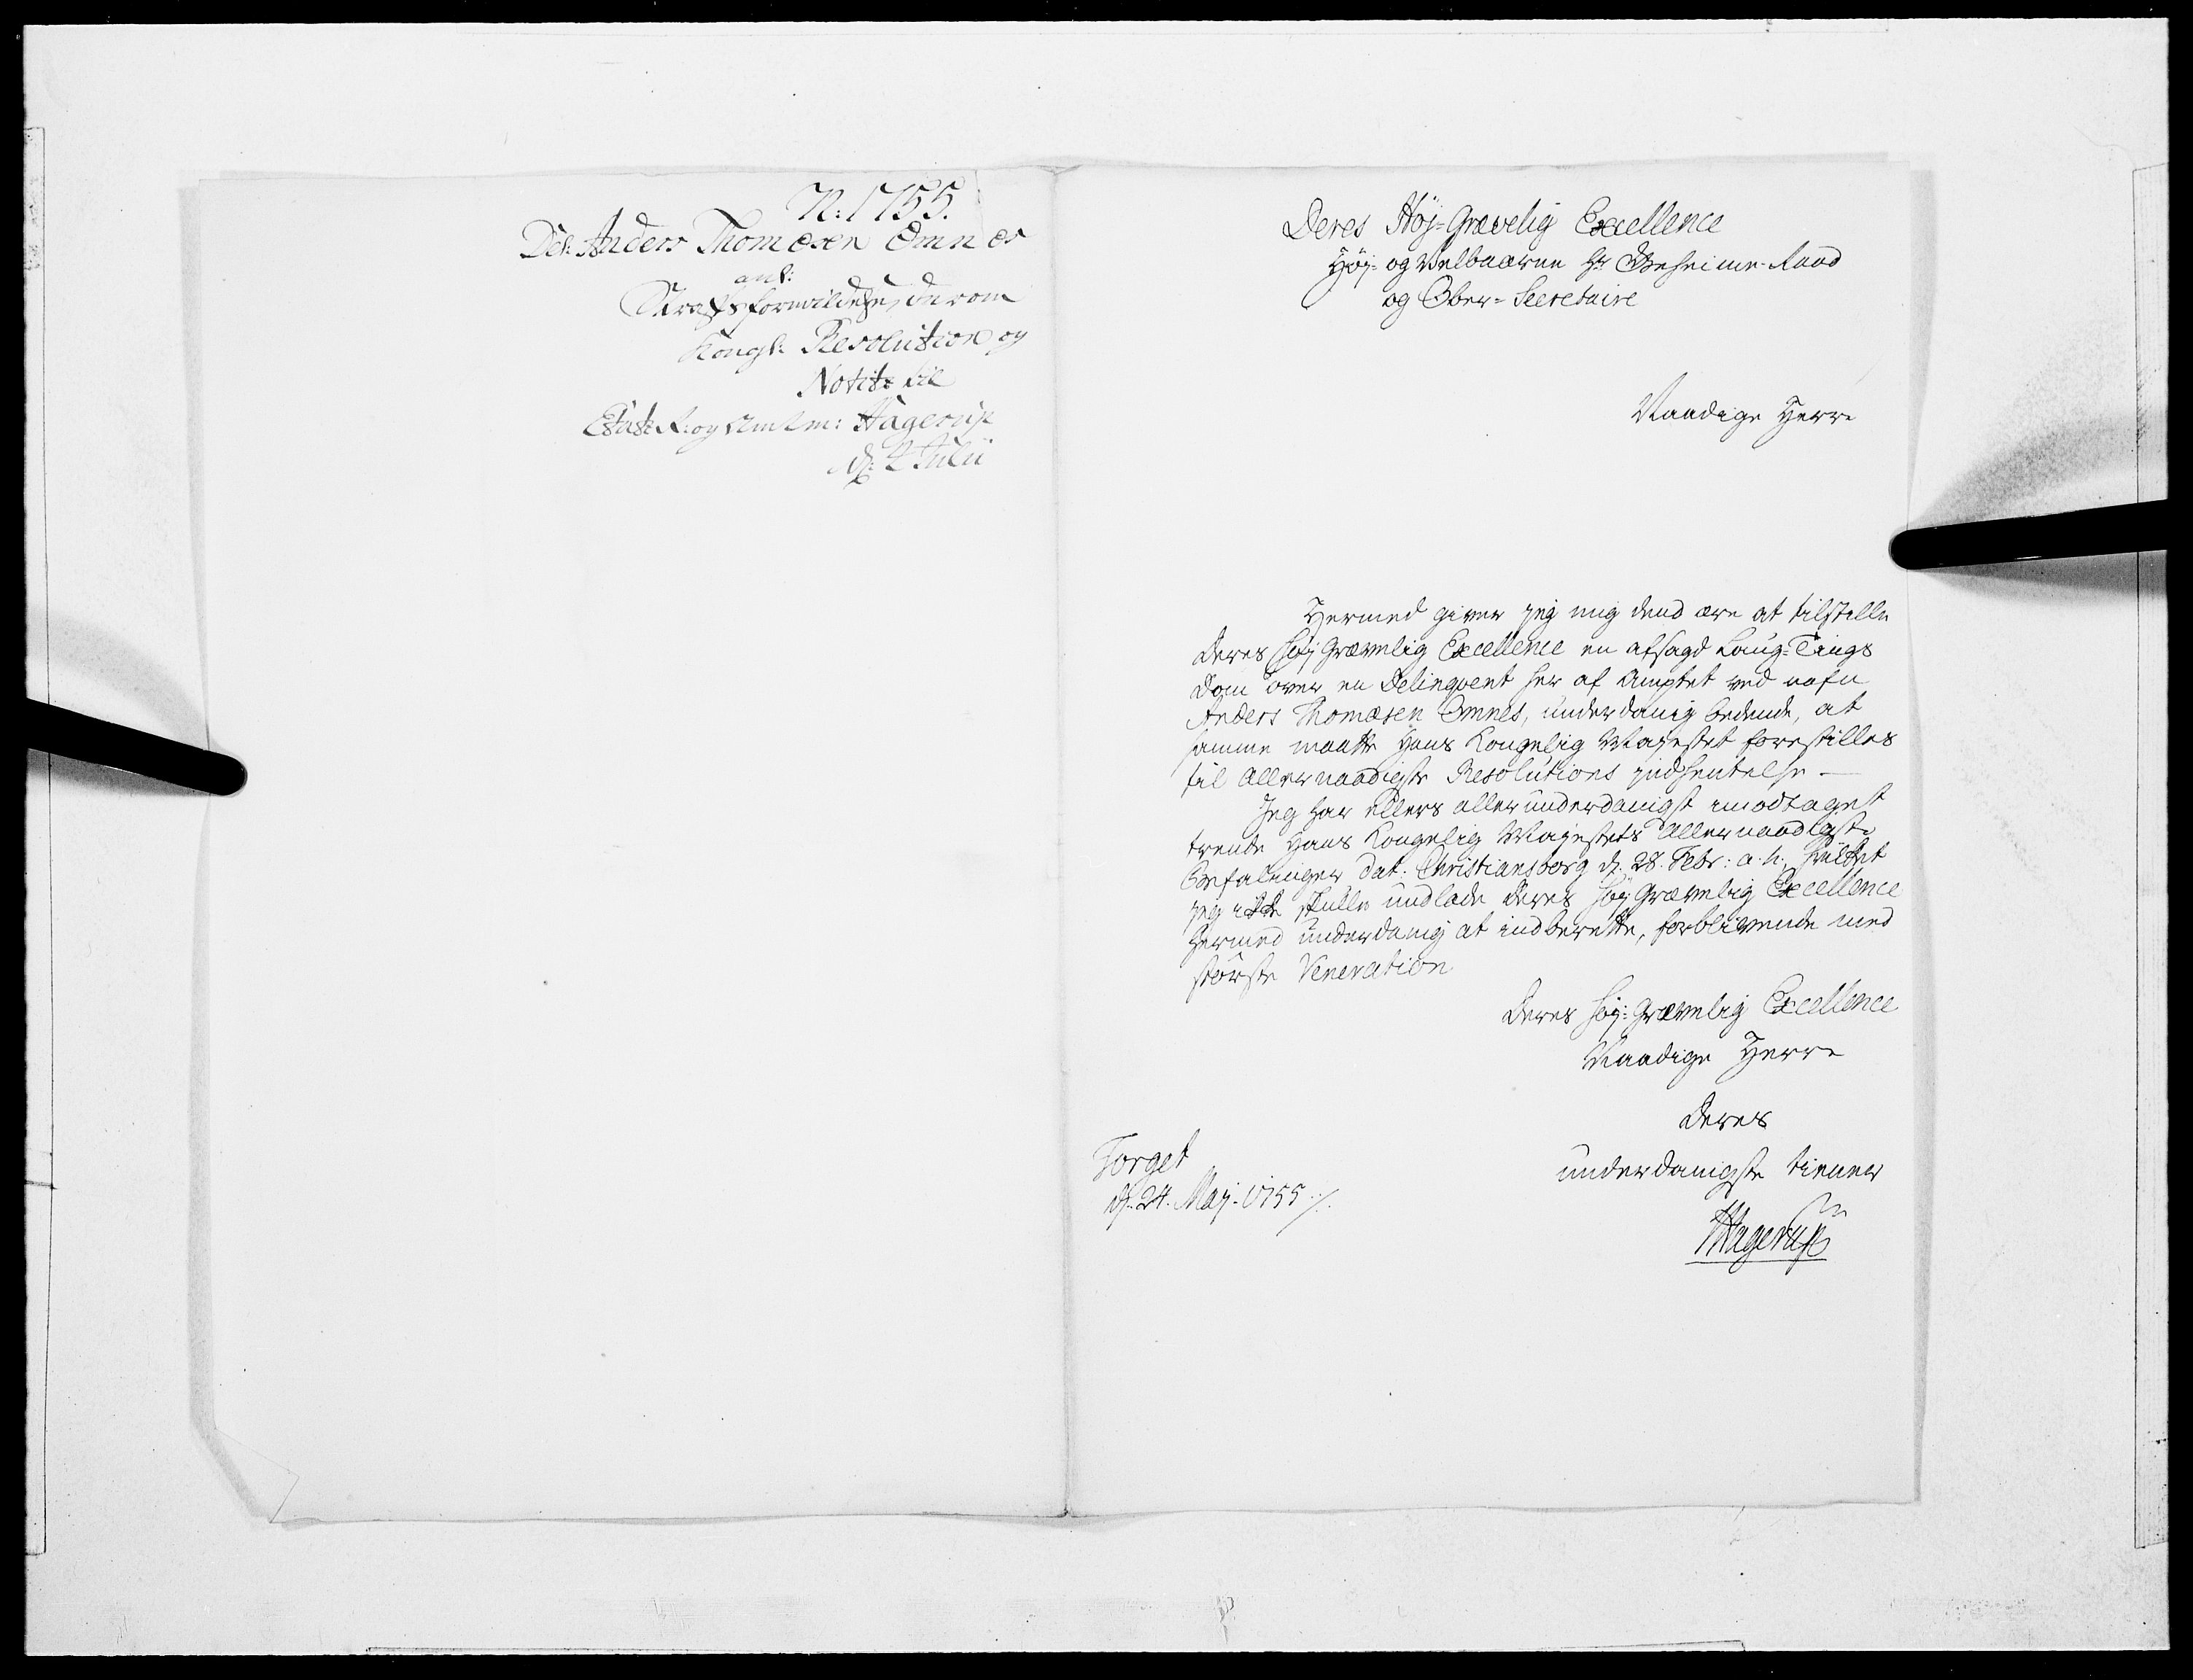 N: 1755.
Del: Anders Thomæsen Omnæs
anl:
Straffs formildelse, derom
Kongl: Resolution og
Notice til
Etats R: og Amtm: Hagerup
d: 4 Julii
Deres Høj-Grævelig Excellence
Høj- og Velbaarne Hr Geheime-Raad
og Ober-Secretaire
Naadige Herre
Hermed giver jeg mig dend ære at tilstille
Deres Høj Grævelig Excellence en afsagd Laug-Tings
Dom over en Delinqvent her af Amptet ved nafn
Anders Thomæsen Omnes, underdanig bedende, at
samme maatte Hans Kongelig Majestet forestilles
til allernaadigste Resolutions indhentelse –
Jeg har ellers allerunderdanigst imodtaget
trende Hans Kongelig Majestets allernaadigste
Befalinger dat: Christiansborg d. 28. Febr: a. h. hvilket
jeg icke skulle undlade Deres Høj Grævelig Excellence
hermed underdanig at indberette, forblivende med
største Veneration
Deres Høj-Grævelig Excellence
Naadige Herre
Deres
underdanigste tiener
Hagerup
Torget
d. 24. Maj. 1755 ./.